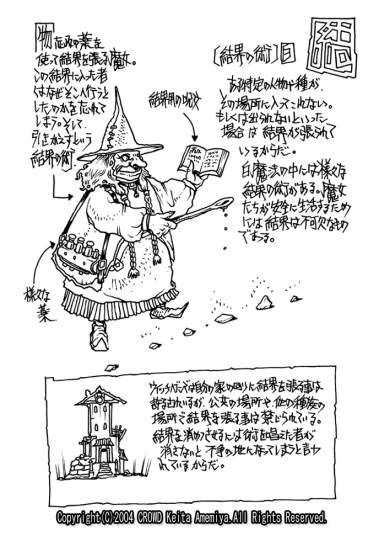 [結界の術] 白
ある特定の人物や種が、
その場所に入ってこれない。
もしくは出られないといった
場合は結界が張られて
いるからだ。
白魔法の中には様々な
結界の術がある。魔女
たちが安全に生活するため
には結界は不可欠なもの
である。
物忘れの薬を
使って結界を張る魔女。
この結界に入った者
はなぜそこへ行こうと
したのかを忘れて
しまう。そして
引きかえすという
結界の術
結界用の呪文
様々な
薬
では自分の家の回りに結界を張る事は
許されているが、公共の場所や、他の種族の
場所で結界を張る事は禁じられている。
結界を消滅させるには術を唱えた者が
消さないと不浄の地になってしまうと言わ
れているからだ。
Copyright(C)2004 CROWD Keita Amemiya.All Rights Reserved.